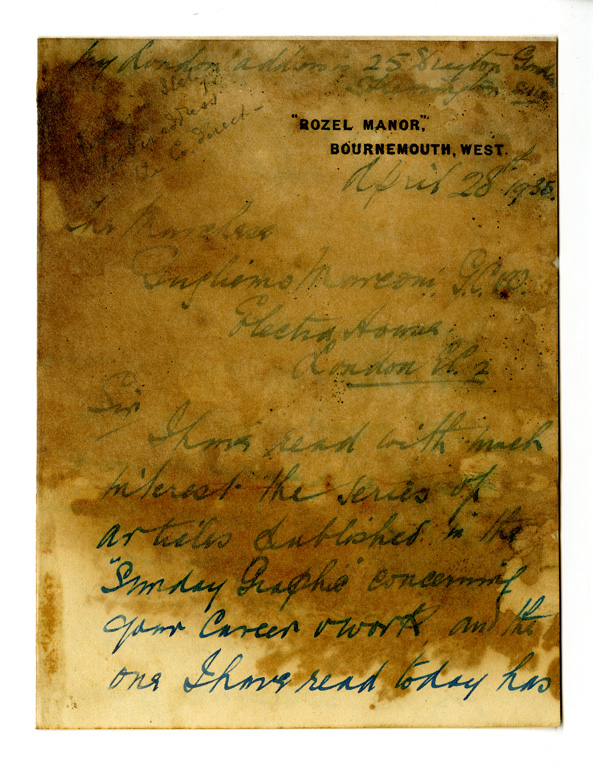 My London address is 25 Drayton Gardens
Kensington SW
address
direct -
"ROZEL MANOR",
BOURNEMOUTH, WEST.
April 28th 1935.
The Marchese
Guglielmo Marconi, G.C.V.O.
Electra House
London EC 2
Sir
I have read with much
interest the series of
articles published in the
"Sunday Graphic" concerning
your career & work, and the
one I have read today has